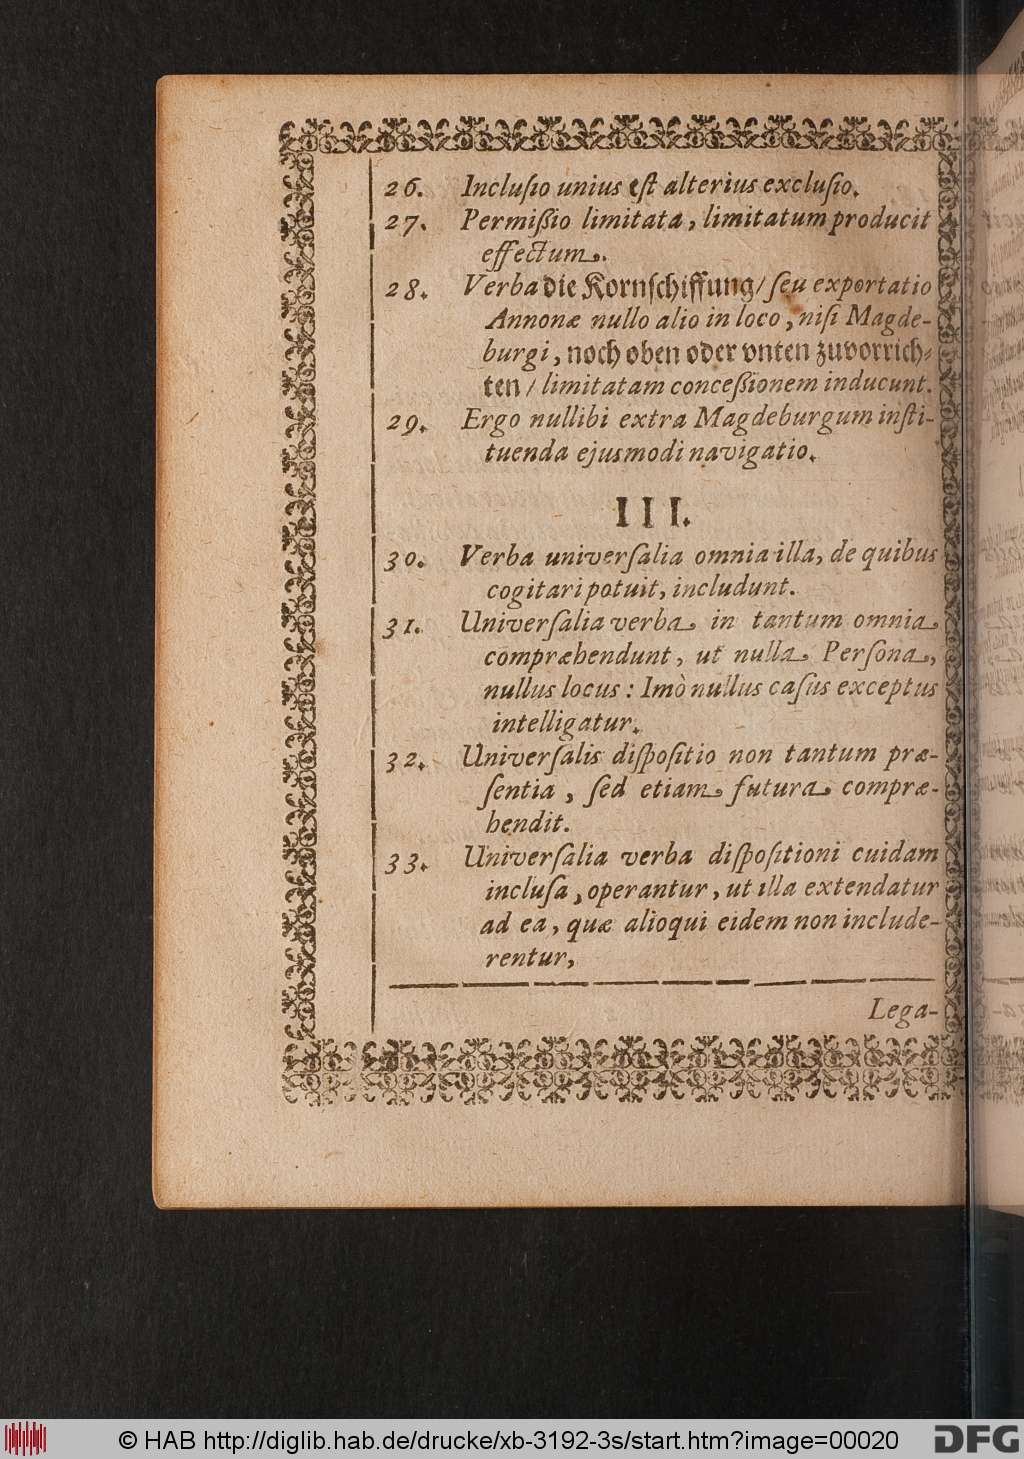 26. Inclusio unius est alterius exclusio.
27. Permißio limitata, limitatum producit
effectum.
28. Verba die Kornschiffung/ seu exportatio
Annonæ nullo alio in loco, nisi Magde-
burgi, noch oben oder vnten zuvorrich-
ten / limitatam conceßionem inducunt.
29. Ergo nullibi extra Magdeburgum insti-
tuenda ejusmodi navigatio.
III.
30. Verba universalia omnia illa, de quibus
cogitari potuit, includunt.
31. Universalia verba in tantum omnia
compræhendunt, ut nulla Persona,
nullus locus: Imò nullus casus exceptus
intelligatur.
32. Universalis dispositio non tantum præ-
sentia, sed etiam futura compræ-
hendit.
33. Universalia verba dispositioni cuidam
inclusa, operantur, ut illa extendatur
ad ea, quæ alioqui eidem non include-
rentur,
Lega-
© HAB http://diglib.hab.de/drucke/xb-3192-3s/start.htm?image=00020
DFG